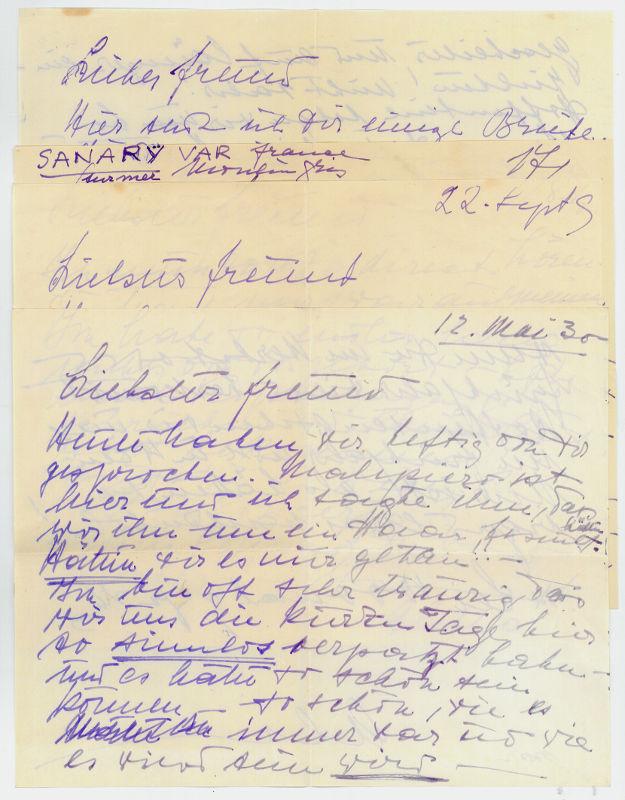 Lieber Freund
Hier send ich Dir einige Briefe.
SANARY VAR France
sur mer Moulin gris
17/
22. Sept
Liebster Freund
12. Mai 30
Liebster Freund
Heute haben wir heftig von Dir
gesprochen. Malipiero ist
hier und ich sagte ihm, dass
wir ihn um ein Haar hätten.
Hätten wir es nur getan! –
Ich bin oft sehr traurig dass
wir uns die kurzen Tage hier
so sinnlos verpatzt haben –
und es hätte so schön sein
können – so schön, wie es
immer war und wie
es wird sein wird –